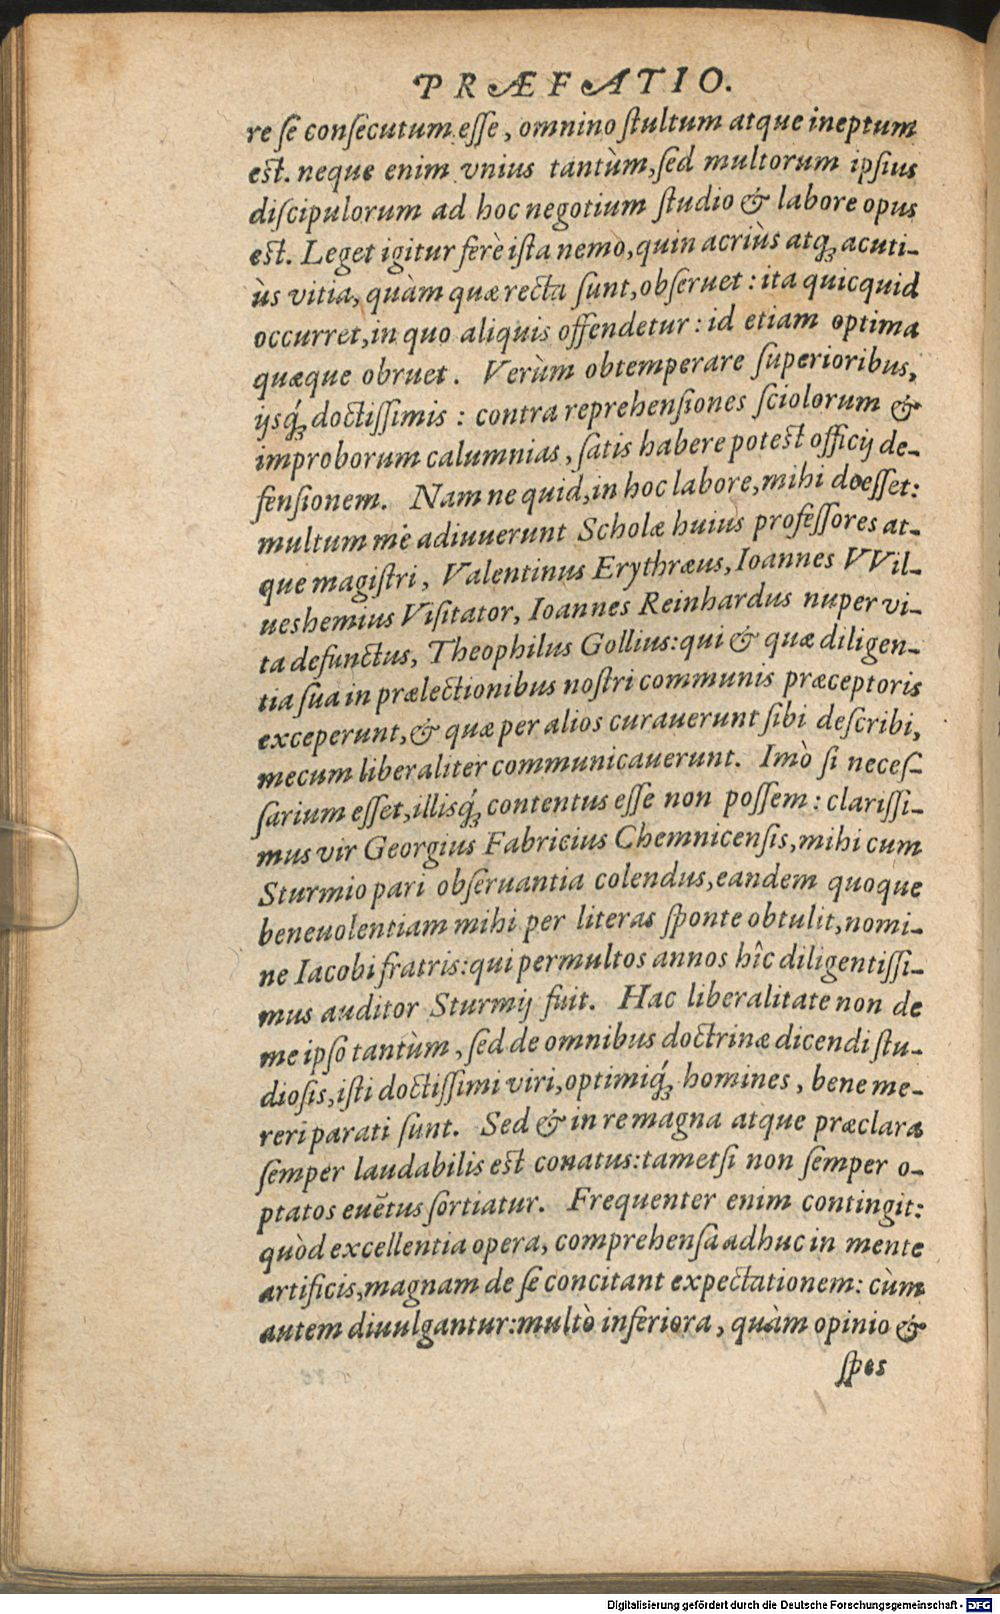 PRÆFATIO.
re se consecutum esse, omnino ſtultum atque ineptum
eſt. neque enim vnius tantùm, ſed multorum ipſius
diſcipulorum ad hoc negotium ſtudio & labore opus
eſt. Leget igitur ferè iſta nemo, quin acriùs atq́; acuti-
ùs vitia, quàm quæ recta ſunt, obſeruet: ita quicquid
occurret, in quo aliquis offendetur: id etiam optima
quæque obruet. Verùm obtemperare ſuperioribus,
ijsq́; doctiſſimis: contra reprehenſiones ſciolorum &
improborum calumnias, ſatis habere poteſt officij de-
fenſionem. Nam ne quid, in hoc labore, mihi deeſſet:
multum me adiuuerunt Scholæ huius profeſſores at-
que magiſtri, Valentinus Erythræus, Ioannes VVil-
ueshemius Viſitator, Ioannes Reinhardus nuper vi-
ta defunctus, Theophilus Gollius: qui & quæ diligen-
tia ſua in prælectionibus noſtri communis præceptoris
exceperunt, & quæ per alios curauerunt ſibi deſcribi,
mecum liberaliter communicauerunt. Imò ſi neceſ-
ſarium eſſet, illisq́; contentus eſſe non poſſem: clariſſi-
mus vir Georgius Fabricius Chemnicenſis, mihi cum
Sturmio pari obſeruantia colendus, eandem quoque
beneuolentiam mihi per literas ſponte obtulit, nomi-
ne Iacobi fratris: qui permultos annos hîc diligentiſſi-
mus auditor Sturmij fuit. Hac liberalitate non de
me ipſo tantùm, ſed de omnibus doctrinæ dicendi ſtu-
dioſis, iſti doctiſſimi viri, optimiq́; homines, bene me-
reri parati ſunt. Sed & in re magna atque præclara
ſemper laudabilis eſt conatus: tametſi non ſemper o-
ptatos euẽtus ſortiatur. Frequenter enim contingit:
quòd excellentia opera, comprehenſa adhuc in mente
artificis, magnam de ſe concitant expectationem: cùm
autem diuulgantur: multò inferiora, quàm opinio &
ſpes
Digitalisierung gefördert durch die Deutsche Forschungsgemeinschaft - DFG